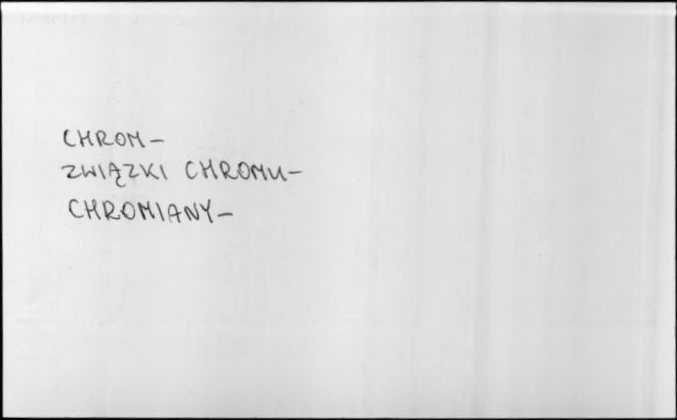 CHROM-
ZWIĄZKI CHROMU-
CHROMIANY-